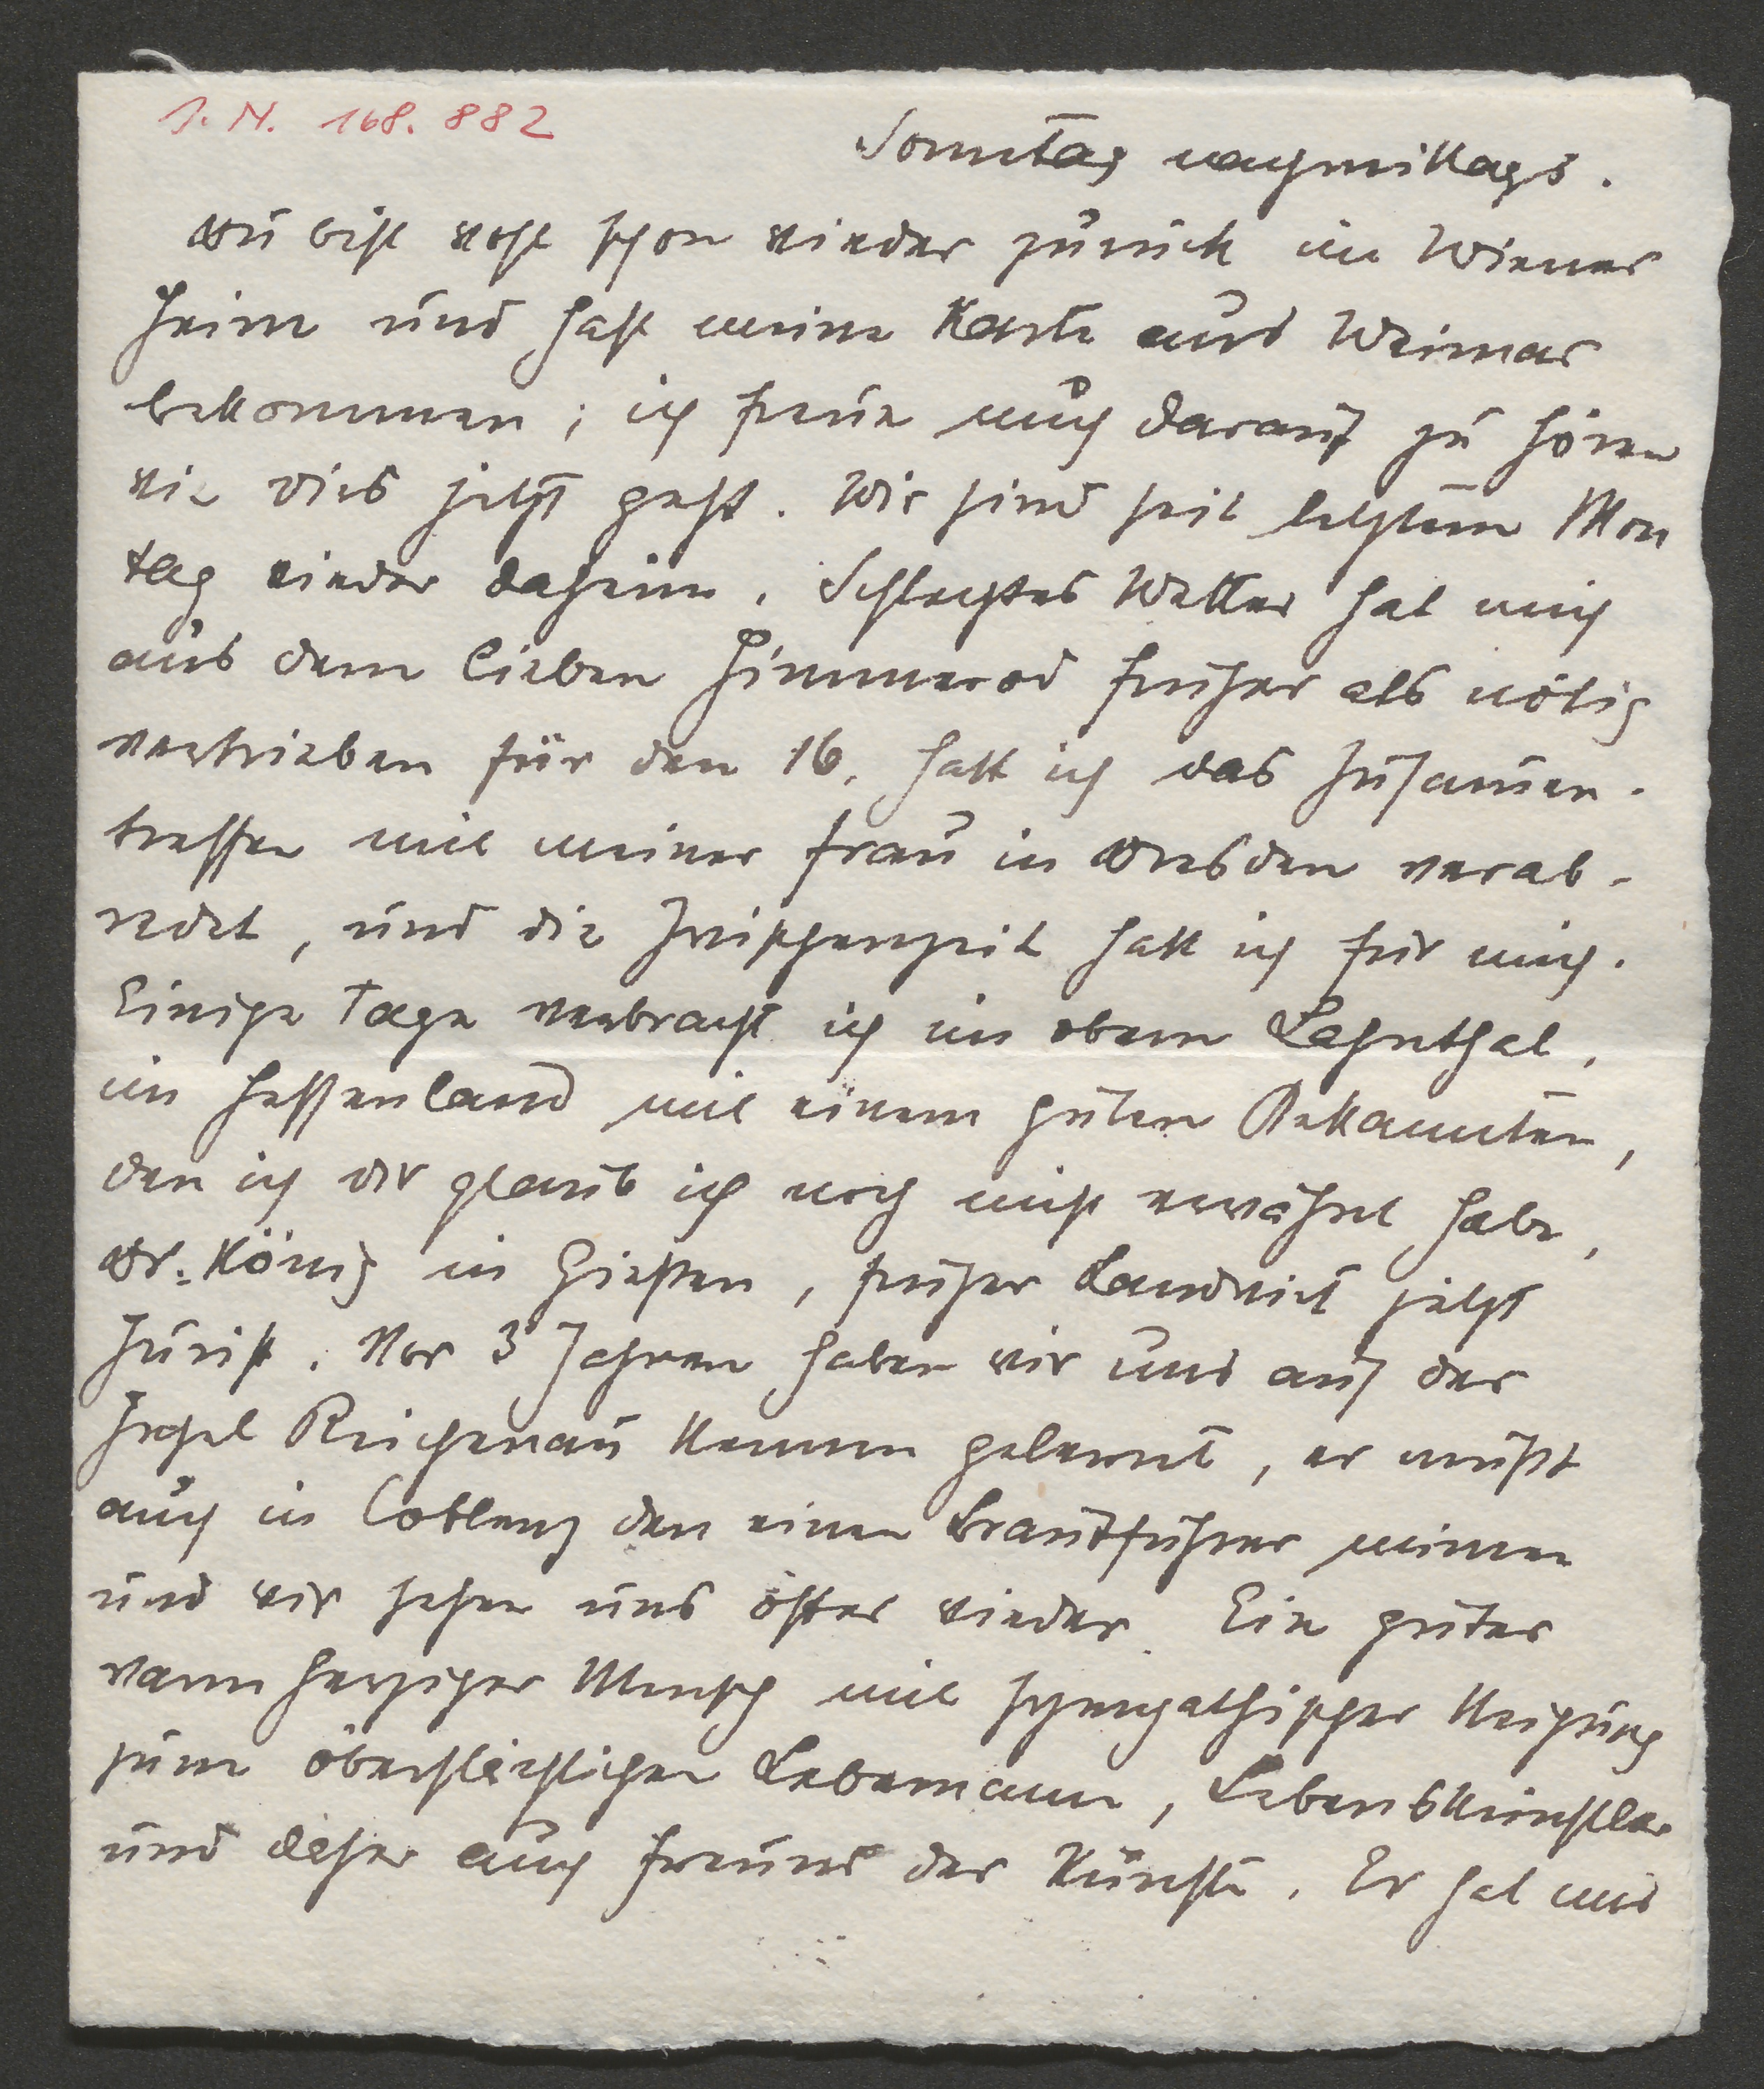 I. N. 168.882
Sonntag nachmittags.
Du bist wohl schon wieder zurück im Wiener
Heim und hast meine Karte aus Weimar
bekommen; ich freue mich darauf zu hören
wie dirs jetzt geht. Wir sind seit letztem Mon
tag wieder daheim. Schlechtes Wetter hat mich
aus dem lieben Himmerod früher als nötig
vertrieben für den 16. hatt ich das Zusamen-
treffen mit meiner Frau in Dresden verab-
redet, und die Zwischenzeit hatt ich für mich.
Einige Tage verbracht ich im obern Lahnthal,
im Hessenland mit einem guten Bekannten,
den ich dir glaub ich noch nicht erwähnt habe,
Dr. König in Giessen, früher Landwirt jetzt
Jurist. Vor 3 Jahren haben wir uns auf der
Insel Reichenau kennen gelernt, er mußt
auch in Coblenz den einen Brautführer mimen
und wir sehen uns öfter wieder. Ein guter
warmherziger Mensch mit sympathischer Neigung
zum oberflächlichen Lebemann, Lebenskünstler
und daher auch Freund der Künste. Er hat uns